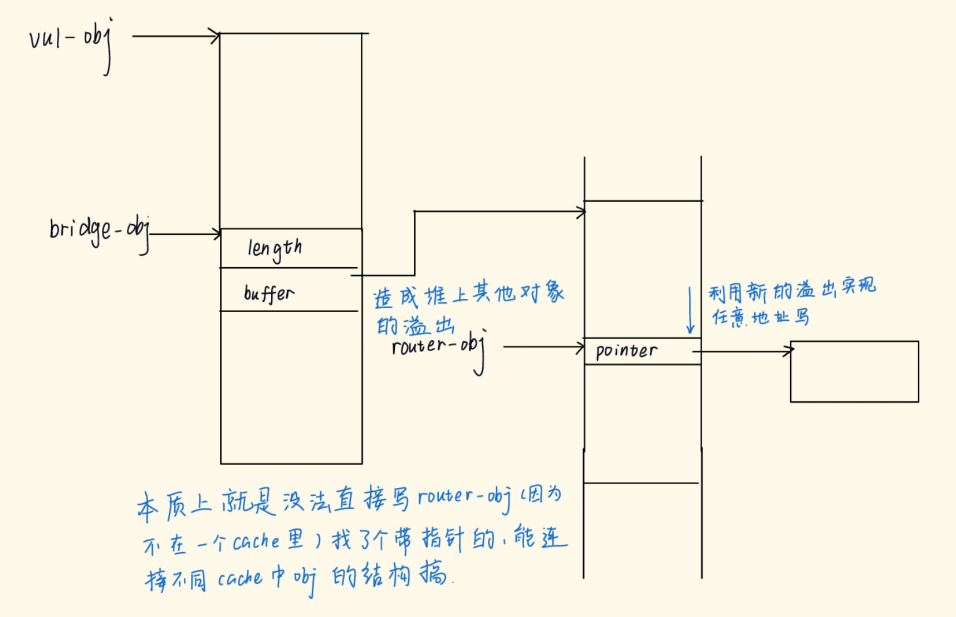 vul-obj
bridge-obj
length
buffer
造成堆上其他对象
的溢出
router-obj
pointer
利用新的溢出实现
任意地址写
本质上就是没法直接写router-obj(因为
不在一个cache里)找了个带指针的,能连
接不同cache中obj的结构搞.